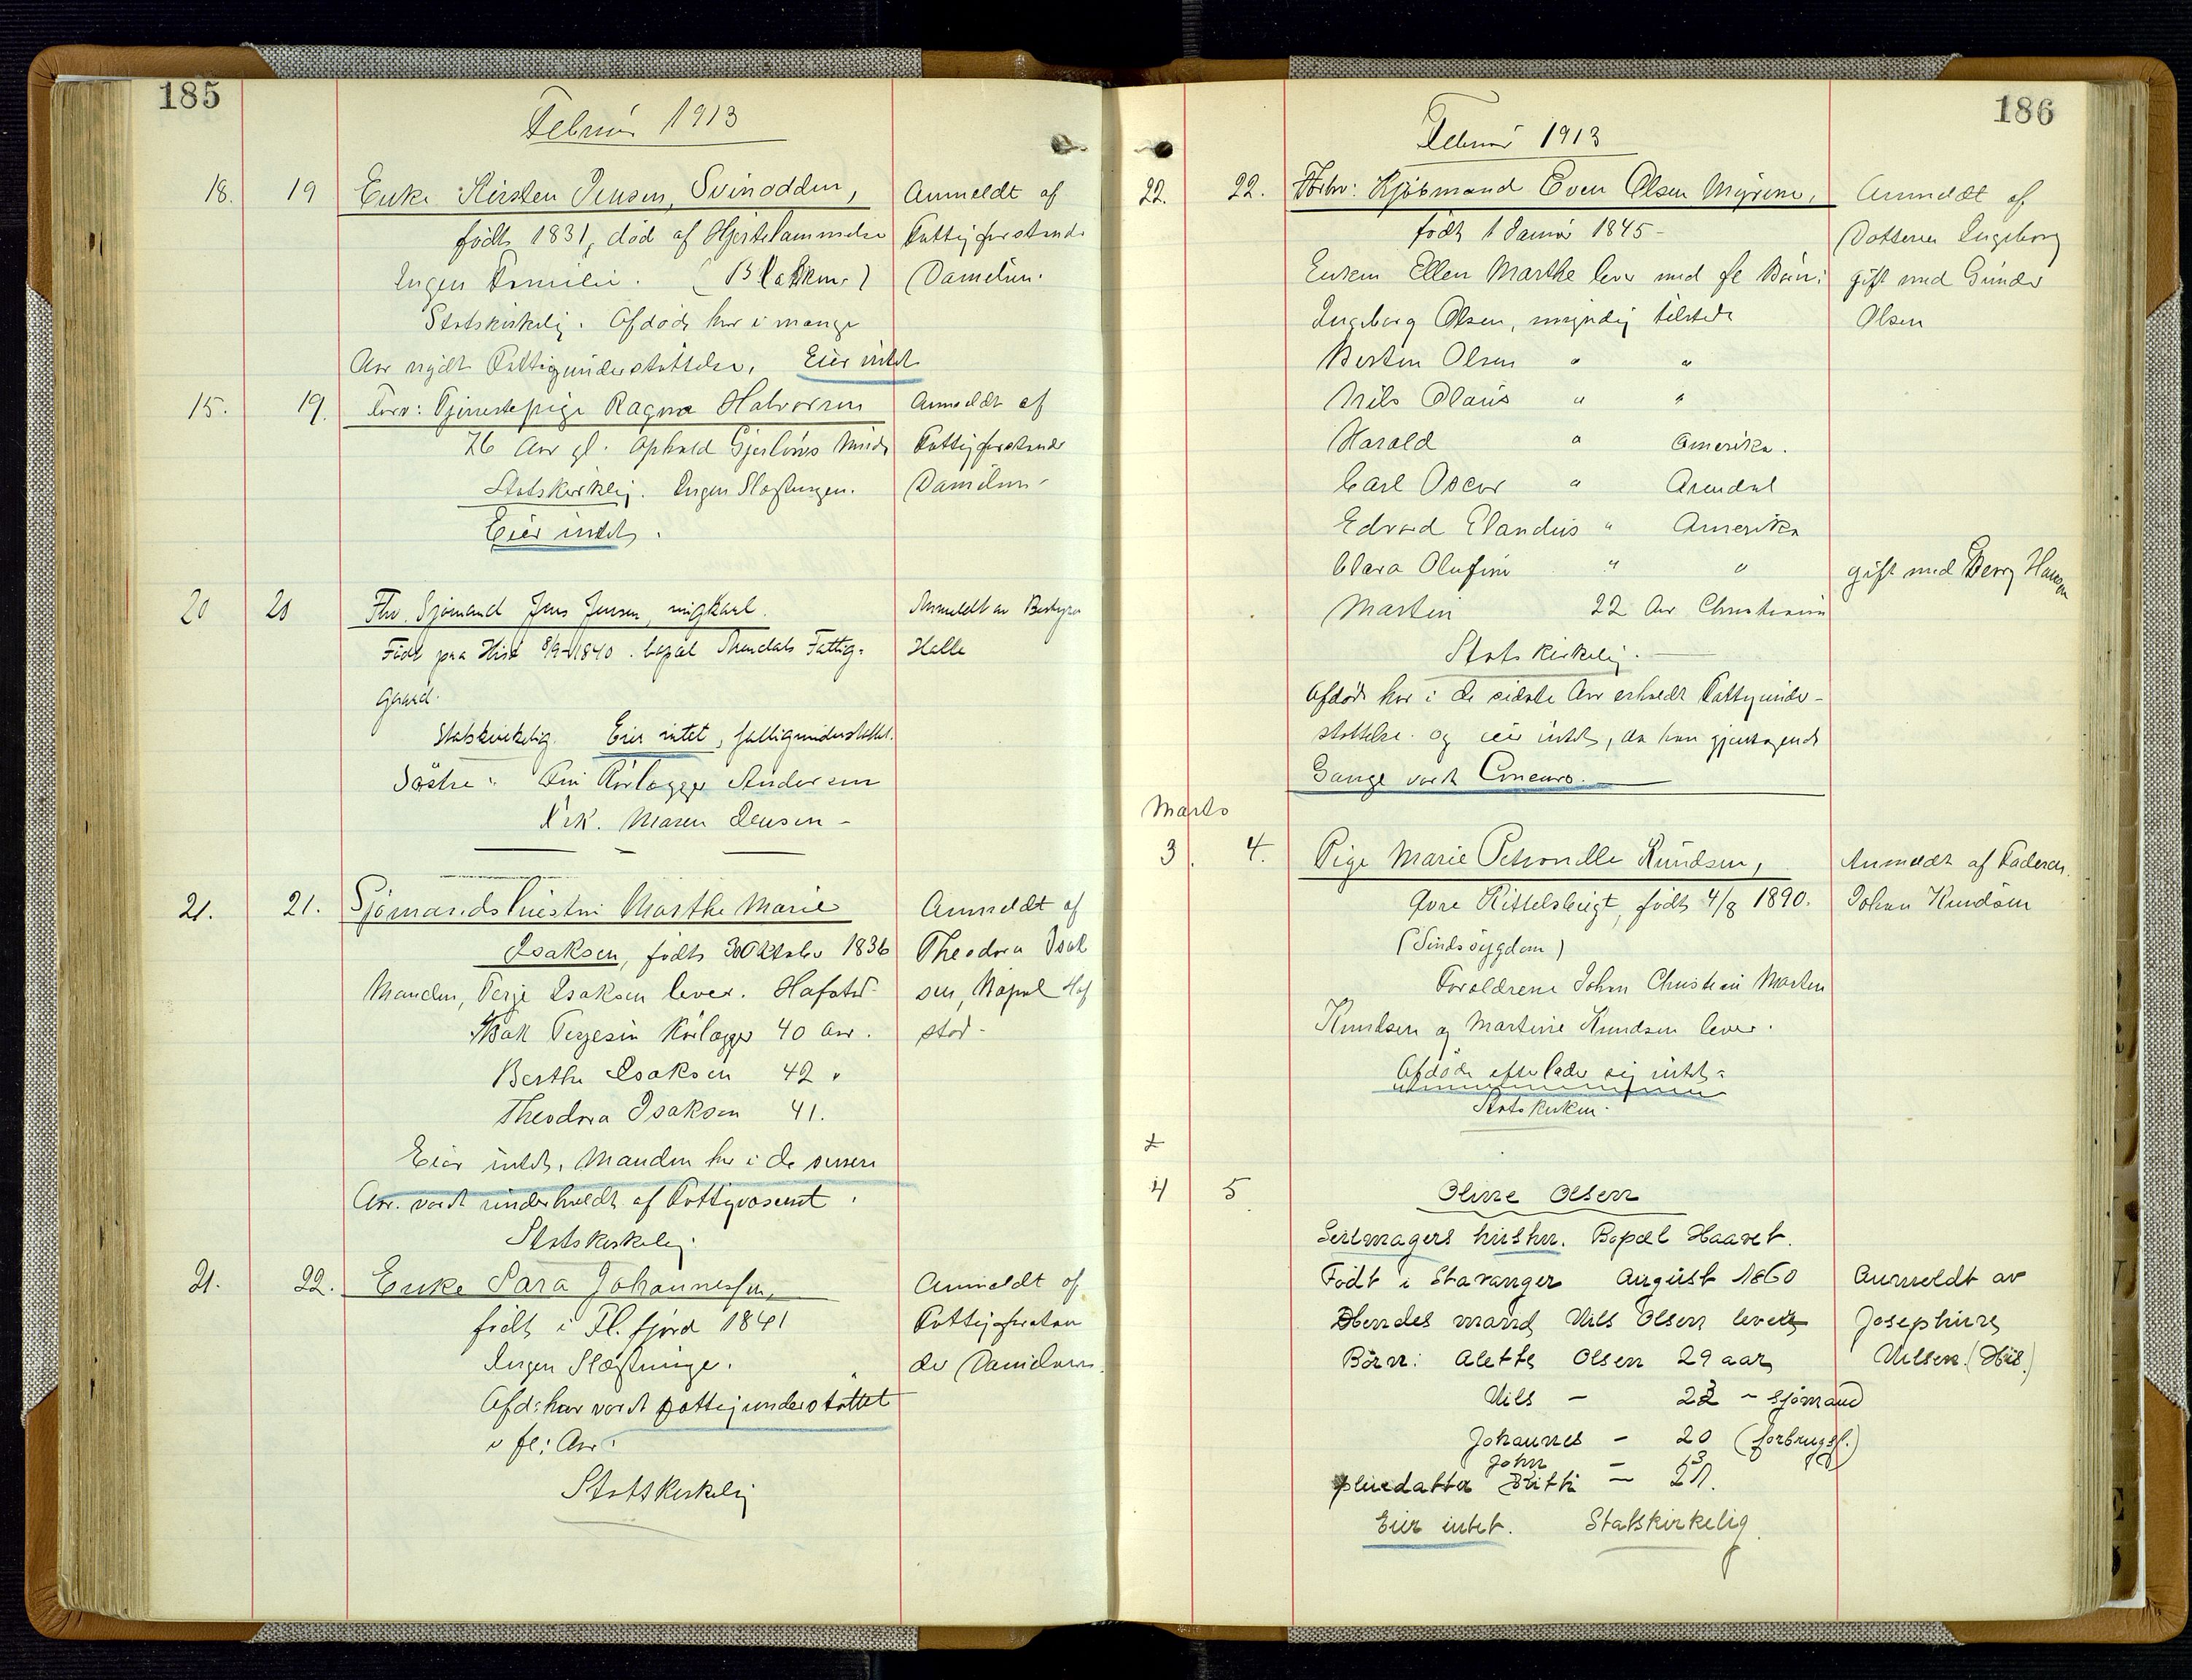 185
Februar 1913
18. 19 Enke Kirsten Jensen, Svinodden, Anmeldt af
født 1831, død af Hjertelammelse Fattigforstander
Ingen Familie. Danielsen.
Statskirkelig. Afdøde har i mange
Aar nydt Fattigunderstøttelse. Eier intet
15. 19. Forv: Tjenestepige Ragna Halvorsen Anmeldt af
76 Aar gl. Ophold Fattigforstander
Statskirkelig. Ingen Slægtninger. Danielsen
Eier intet.
20 20 Fhv. Sjømand Jens Jensen, ungkarl. Anmeldt av Bestyrer
Født paa Hisø 8/9-1840. bopæl Arendals Fattig- Helle
gaard.
Statskirkelig. Eier intet, fattigunderstøttet.
Søstre: Andersen
Frk. Maren Jensen -
21. 21. Sjømandshustru Marthe Marie Anmeldt af
Isaksen, født 30 Oktober 1836 Theodora Isak
Manden, Terje Isaksen lever. Hafstad sen, Bopæl Haf
Isak Terjesen 40 Aar. stad-
Berthe Isaksen 42 "
Theodora Isaksen 41.
Eier intet, Manden har i de senere
Aar været underholdt af Fattigvæsenet.
Statskirkelig.
21. 22. Enke Sara Johannessen, Anmeldt af
født i Fl. fjord 1841 Fattigforstan
Ingen Slægtninge. der Danielsen.
Afd: har været fattigunderstøttet
i fl: Aar.
Statskirkelig
186
Februar 1913
22. 22. Forhv: Kjøbmand Even Olsen Myrene, Anmeldt af
født 1 Januar 1845- Datteren Ingeborg
Enken Ellen Marthe lever med fl Børn: gift med Gunder
Ingeborg Olsen, myndig tilstede Olsen
Bertin Olsen " "
Nils Olaus " "
Harald " Amerika.
Carl Oscar " Arendal
Edvard Elandius " Amerika
Clara Olufine " " gift med Berg Hansen
Martin 22 Aar Christiania
Statskirkelig.
Afdøde har i de sidste Aar erholdt Fattigunder-
støttelse. og eier intet, da han gjentagende
Gange været Concurs.
Marts
3. 4. Pige Marie Petronelle Knudsen, Anmeldt af Faderen
Øvre Kittelsbugt, født 4/8 1890. Johan Knudsen
(Sindssygdom)
Forældrene Johan Christian Marten
Knudsen og Martine Knudsen lever.
Afdøde efterlader sig intet.
Statskirken.
4 5 Oline Olsen
Seilmagers hustru. Bopæl Haavet.
Født i Stavanger August 1860 Anmeldt av
Hendes mand Nils Olsen lever Josephine
Børn: Alette Olsen 29 aar Nilsen (His.)
Nils - 22 - sjømand
Johannes - 20 (forbrugsf.)
John - 18
pleiedatter -
Eier intet. Statskirkelig.